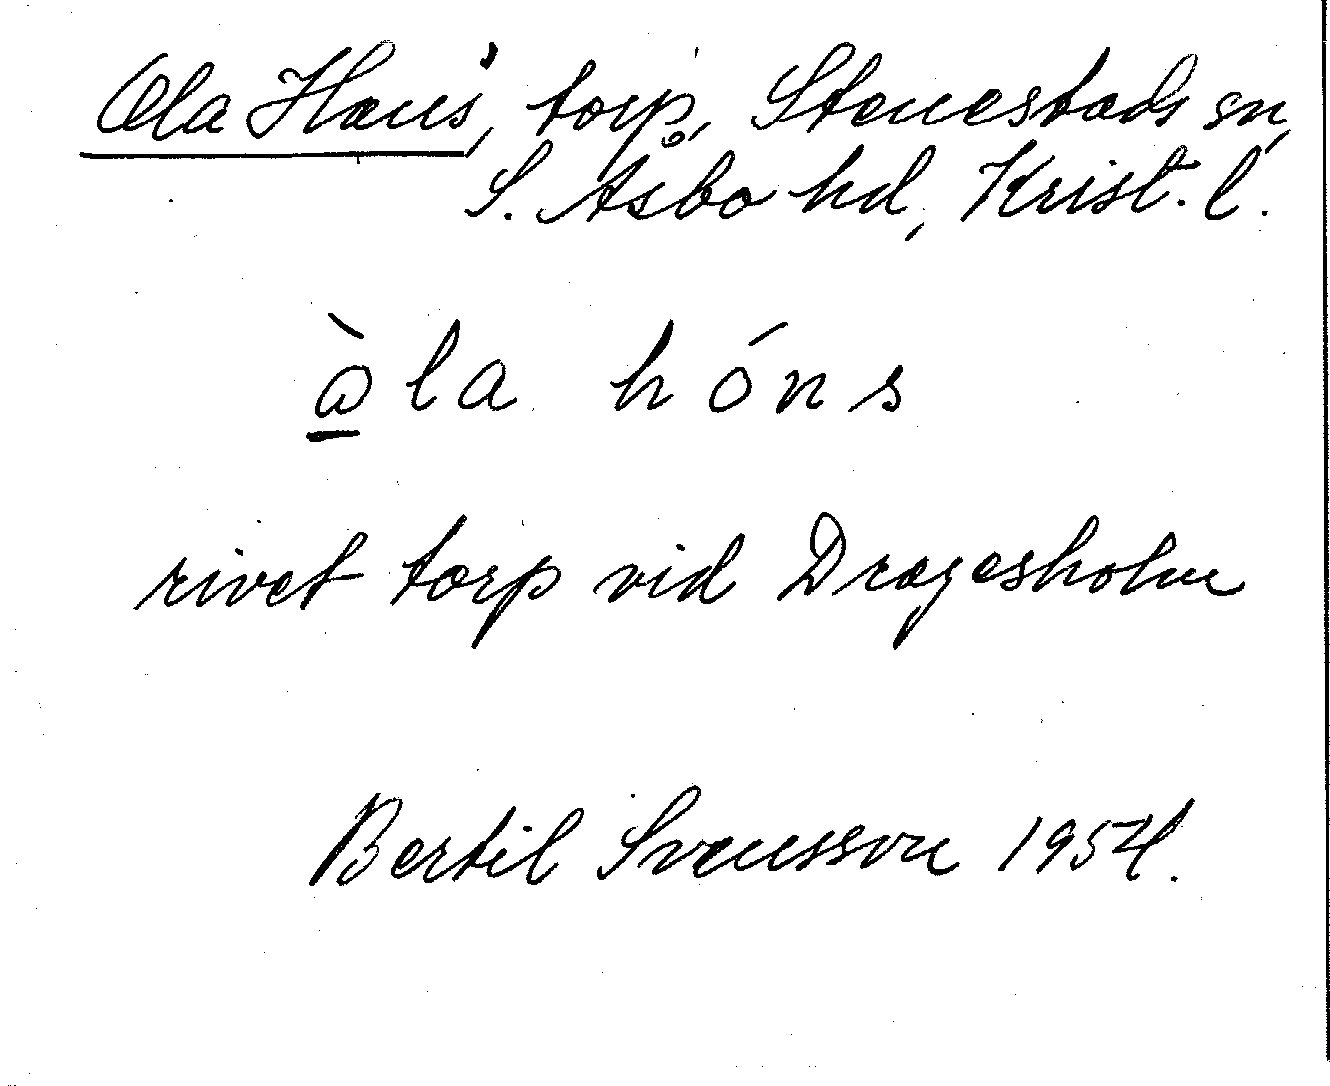 Ola Hans', torp, Stenestads sn,
S. Åsbo hd, Krist. l.
àla hóns
rivet torp vid Dragesholm
Bertil Svensson 1954.